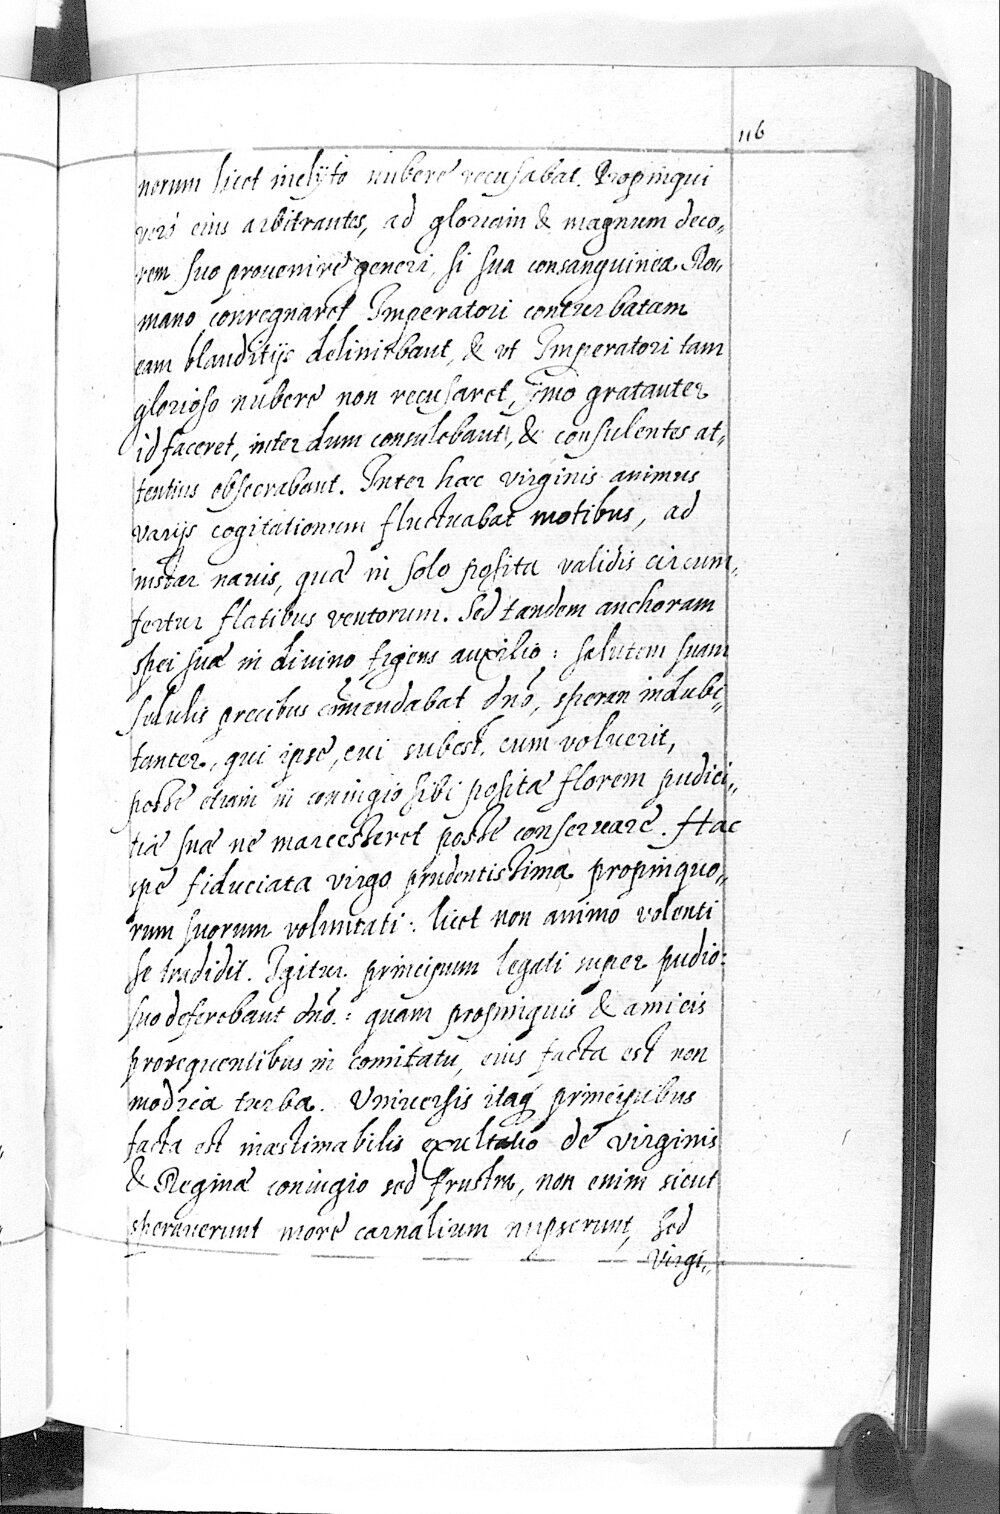 116
norum licet inclyto nubere recusabat. Propinqui
verò eius arbitrantes, ad gloriam & magnum deco,,
rem suo prouenire generi, si sua consanguinea Ro,,
mano conregnaret Imperatori conturbatam
eam blanditijs delinibant, & vt Imperatori tam
glorioso nubere non recusaret, imo gratanter
id faceret, interdum consulebant, & consulentes at,,
tentius obsecrabant. Inter hæc virginis animus
varijs cogitationum fluctuabat motibus, ad
instar nauis, quæ in solo posita validis circum,,
fertur flatibus ventorum. Sed tandem anchoram
spei suæ in diuino figens auxilio: salutem suam
sedulis precibus cōmendabat dnō, speran indubi,,
tanter, qui ipse, cui subest, cum voluerit,
posse etiam in coniugio sibi positæ florem pudici,,
tiæ suæ ne marcesteret posse conseruare. Hac
spe fiduciata virgo prudentissima propinquo,,
rum suorum voluntati: licet non animo volenti
se tradidit. Igitur principum legati super pudio:
suo deferebant dnō: quam propinquis & amicis
prosequentibus in comitatu, eius facta est non
modica turba. Vniuersis itaq principibus
facta est inæstimabilis exultatio de virginis
& Reginæ coniugio sed frustra, non enim sicut
sperauerunt more carnalium nupserunt, sed
virgi,,